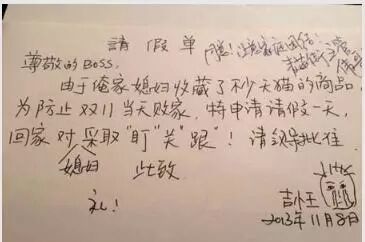 請假单
尊敬的BOSS.
由于俺家媳妇收藏了不少天猫的商品,
为防止双11当天败家,特申请请假一天,
回家对采取"盯""关""跟"!请领导批准
媳妇 此致
礼!
2013年11月8日